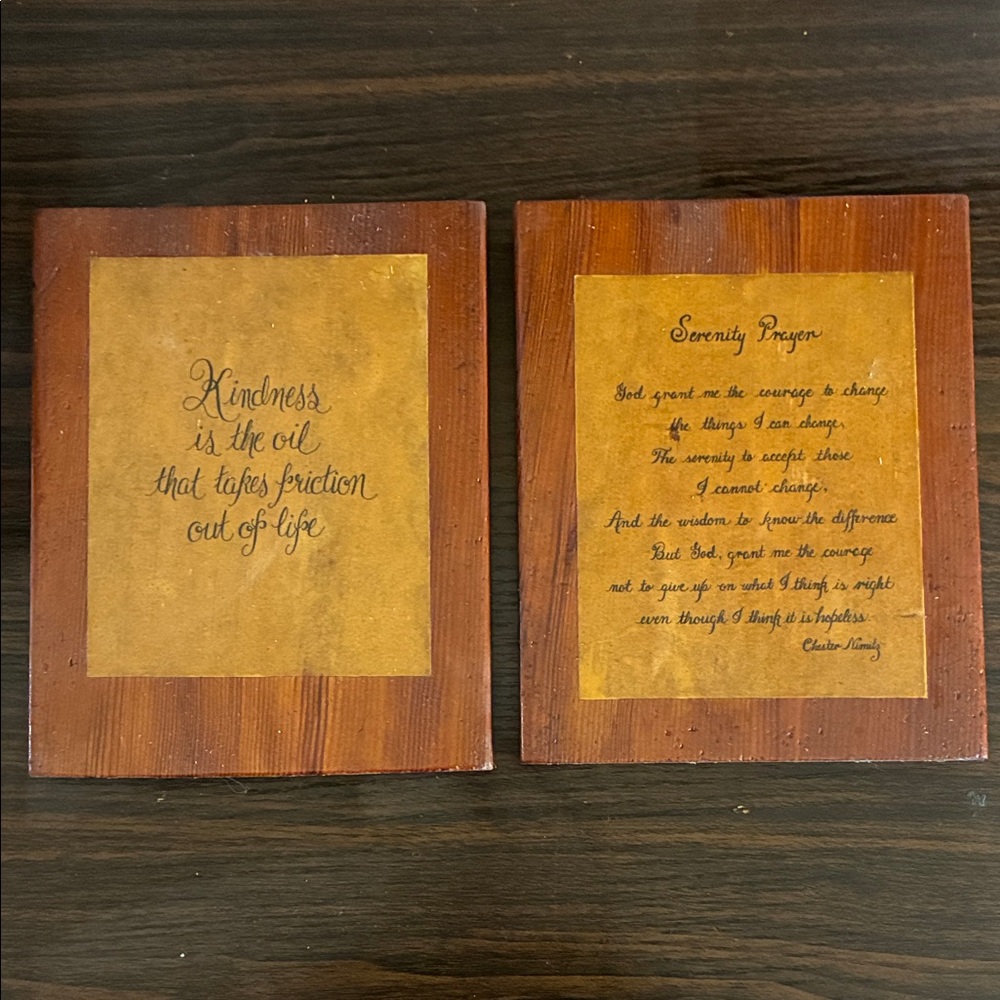 Kindness
is the oil
that takes friction
out of life
Serenity Prayer
God grant me the courage to change
the things I can change,
The serenity to accept those
I cannot change,
And the wisdom to know the difference
But God, grant me the courage
not to give up on what I think is right
even though I think it is hopeless.
Chester Nimitz